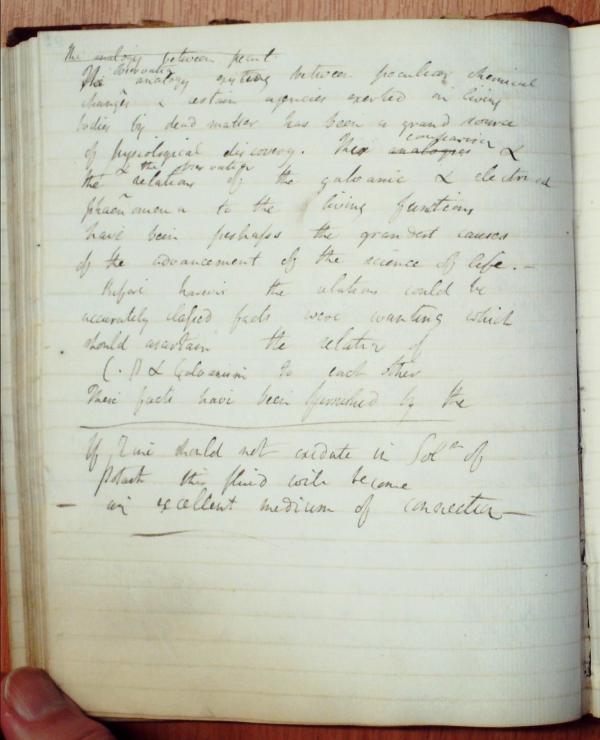 The analogy between pecul
The observation analogy existing between peculiar chemical
changes & certain agencies exerted on living
bodies by dead matter has been a grand source
of physiological discovery. This analogies comparison &
the & the observation relations of the galvanic & electrical
phaenomena to the living functions
have been perhaps the grandest causes
of the advancement of the science of life. –
Before however the relations could be
accurately classed facts were wanting which
should ascertain the relation of
& Galvanism to each other
These facts have been furnished by the
If Zinc should not oxidate in Sol^n of
potash this fluid will become
– an excellent medium of connection –